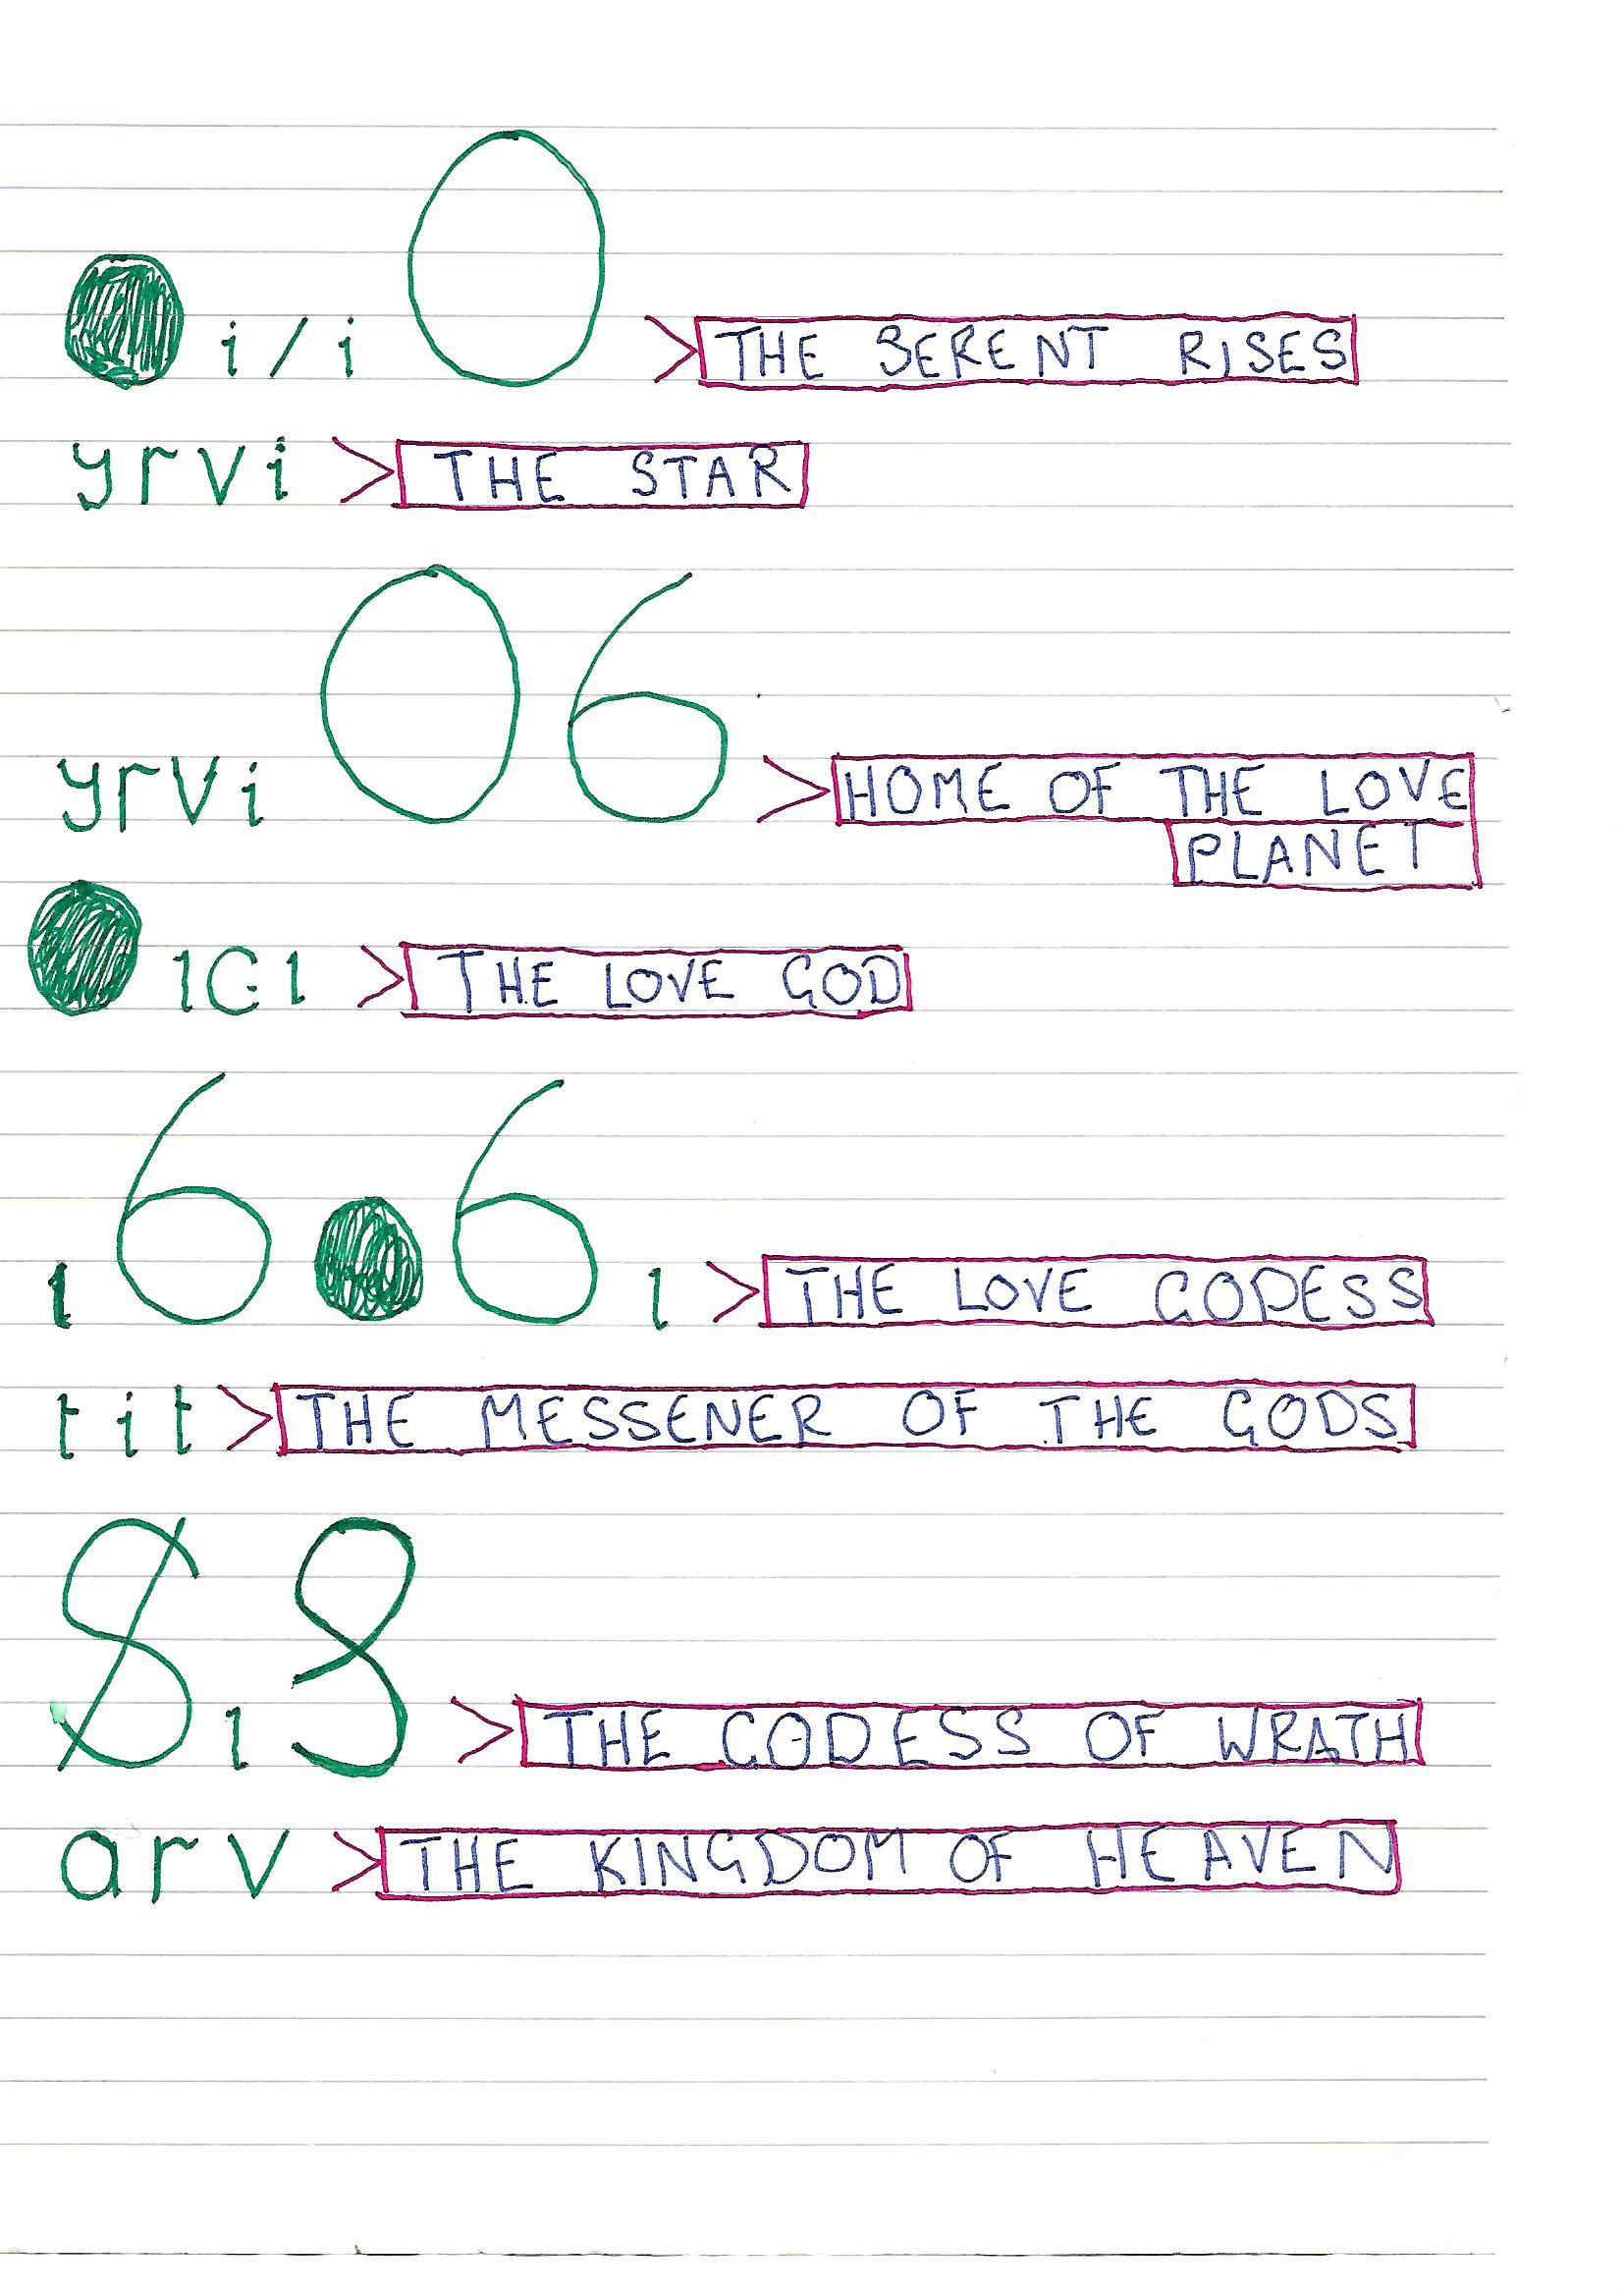 ● i / i 0 > THE SERENT RISES
yrvi > THE STAR
yrvi 06 > HOME OF THE LOVE
PLANET
● 1G1 > THE LOVE GOD
1 6 ● 6 1 > THE LOVE GODESS
tit > THE MESSENER OF THE GODS
8 1 8 > THE GODESS OF WRATH
arv > THE KINGDOM OF HEAVEN